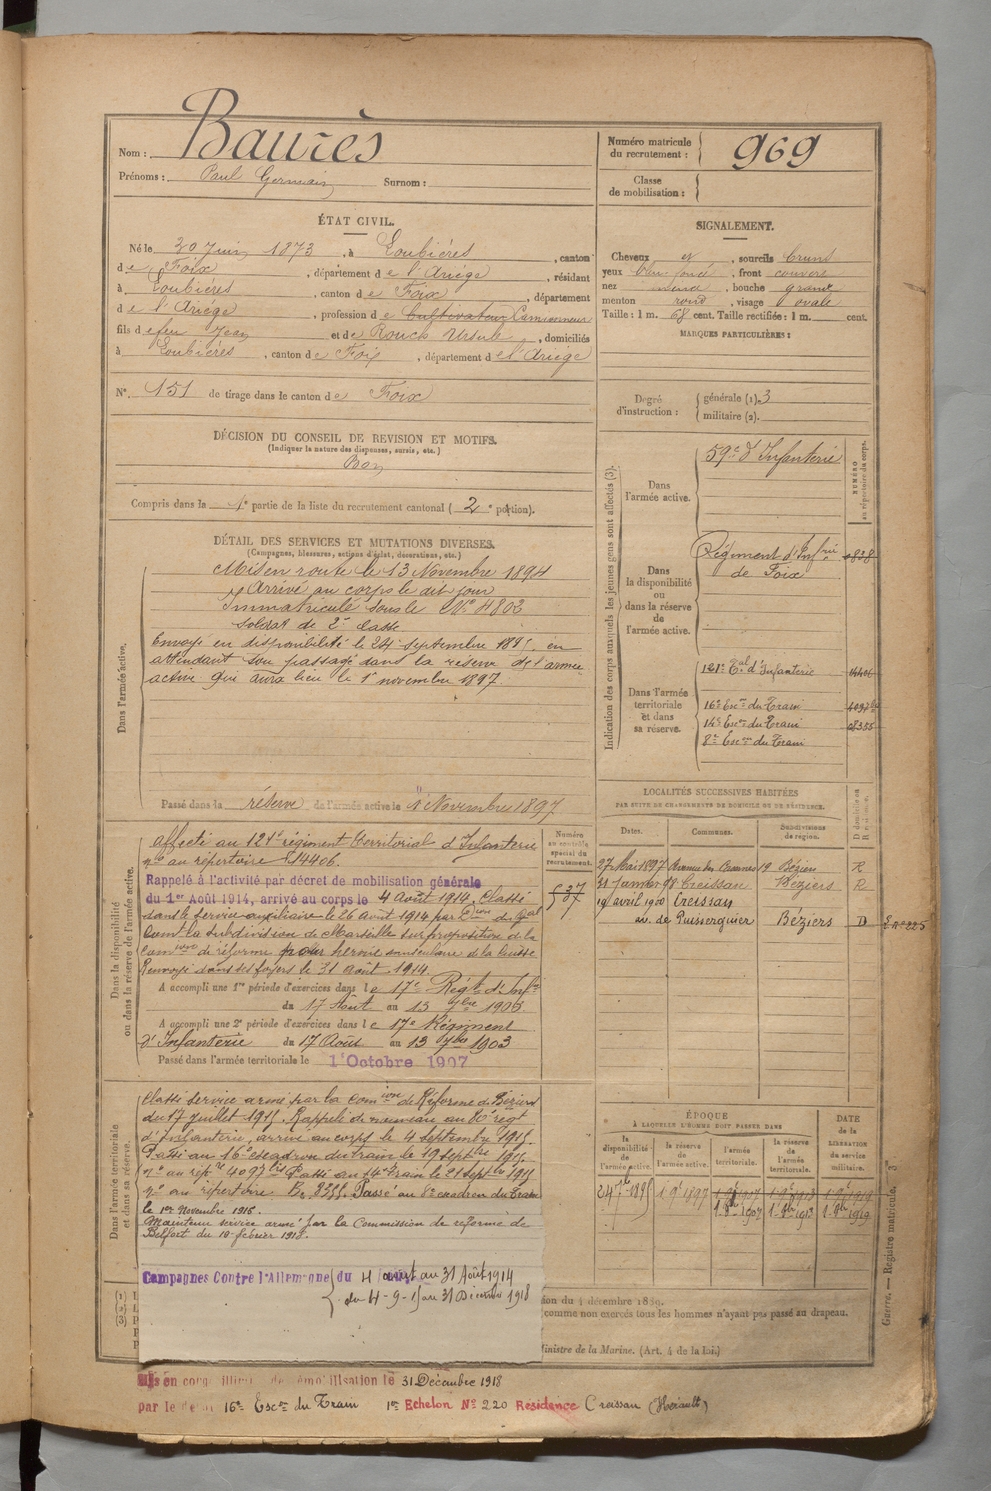 Nom : Baurès
Prénoms : Paul Germain Surnom :
Numéro matricule du recrutement : 969
Classe de mobilisation :
ÉTAT CIVIL.
Né le 30 Juin 1873, à Loubières, canton
de Foix, département de l'Ariège, résidant
à Loubières, canton de Foix, département
de l'Ariège, profession de Cultivateur Camionneur
fils de feu Jean et de Rouch Ursule, domiciliés
à Loubières, canton de Foix, département de l'Ariège
N° 151 de tirage dans le canton de Foix
DÉCISION DU CONSEIL DE REVISION ET MOTIFS.
(Indiquer la nature des dispenses, sursis, etc.)
Bon
Compris dans la 1e partie de la liste du recrutement cantonal (2e portion).
SIGNALEMENT.
Cheveux et, sourcils bruns
yeux bleu foncé, front couvert
nez, bouche grande
menton rond, visage ovale
Taille : 1 m. 68 cent. Taille rectifiée : 1 m. cent.
MARQUES PARTICULIÈRES :
Degré d'instruction : générale (1). 3
militaire (2).
DÉTAIL DES SERVICES ET MUTATIONS DIVERSES.
(Campagnes, blessures, actions d'éclat, décorations, etc.)
Dans l'armée active.
Mis en route le 13 Novembre 1894
Arrivé au corps le dit jour
Immatriculé sous le N° 4802
Soldat de 2e classe
Envoyé en disponibilité le 24 septembre 1895, en
attendant son passage dans la réserve de l'armée
active qui aura lieu le 1er novembre 1897
Passé dans la réserve de l'armée active le 1er Novembre 1897
Indication des corps auxquels les jeunes gens sont affectés (3).
NUMÉRO au répertoire du corps.
Dans l'armée active.
59e d'Infanterie
Dans la disponibilité ou dans la réserve de l'armée active.
Régiment d'Infrie 838
de Foix
Dans l'armée territoriale et dans sa réserve.
121e Tal d'Infanterie 14406
16e Escon du Train 4097 bis
14e Escon du Train
8e Escon du Train
LOCALITÉS SUCCESSIVES HABITÉES
PAR SUITE DE CHANGEMENTS DE DOMICILE OU DE RÉSIDENCE.
Dates. Communes. Subdivisions de région. D domicile ou R résidence.
27 Mai 1897 Avenue des Casernes 19 Béziers R
31 Janvier 98 Creissan Béziers R
19 avril 1900 Creissan
de Puisserguier Béziers D
Dans la disponibilité ou dans la réserve de l'armée active.
Numéro au contrôle spécial du recrutement.
537
Affecté au 121e régiment territorial d'Infanterie
n° au répertoire 14406.
Rappelé à l'activité par décret de mobilisation générale
du 1er Août 1914, arrivé au corps le 4 Août 1914. Classé
dans le service auxiliaire le 26 Août 1914 par Don du Gal
Comt la subdivision de Marseille sur proposition de la
Comion de réforme pour hernie musculaire de la cuisse
Renvoyé dans ses foyers le 31 Août 1914.
A accompli une 1re période d'exercices dans le 17e Régt d'Infie
du 17 Août au 13 7bre 1900
A accompli une 2e période d'exercices dans le 17e Régiment
d'Infanterie du 17 Août au 13 7bre 1903
Passé dans l'armée territoriale le 1er Octobre 1907
Dans l'armée territoriale et dans sa réserve.
Classé service armé par la Comion de Réforme de Béziers
du 17 juillet 1915. Rappelé de nouveau au régt
d'Infanterie, arrivé au corps le 4 septembre 1915.
Passé au 16e escadron du train le 19 septbre 1915.
n° au répre 4097 bis Passé au 14e Train le 21 septbre 1915
n° au répertoire Passé au 8e escadron du Train
le 1er Novembre 1916.
Maintenu service armé par la Commission de réforme de
Belfort du 10 février 1918.
Campagnes Contre l'Allemagne du 4 août au 31 Août 1914
du 4-9-15 au 31 Décembre 1918
ÉPOQUE
À LAQUELLE L'HOMME DOIT PASSER DANS
la disponibilité de l'armée active. la réserve de l'armée active. l'armée territoriale. la réserve de l'armée territoriale.
DATE de la LIBÉRATION du service militaire.
24 7bre 1895 1 9bre 1897 1 9bre 1907 1 9bre 1913 1 9bre 1919
1 8bre 1907 1 8bre 1913 1 8bre 1919
Guerre. — Registre matricule. 3
du 4 décembre 1889.
comme non exercés tous les hommes n'ayant pas passé au drapeau.
Ministre de la Marine. (Art. 4 de la loi.)
Mis en congé illimité de démobilisation le 31 Décembre 1918
par le dépôt 16e Escon du Train 1er Echelon N° 220 Résidence Creissan (Hérault)